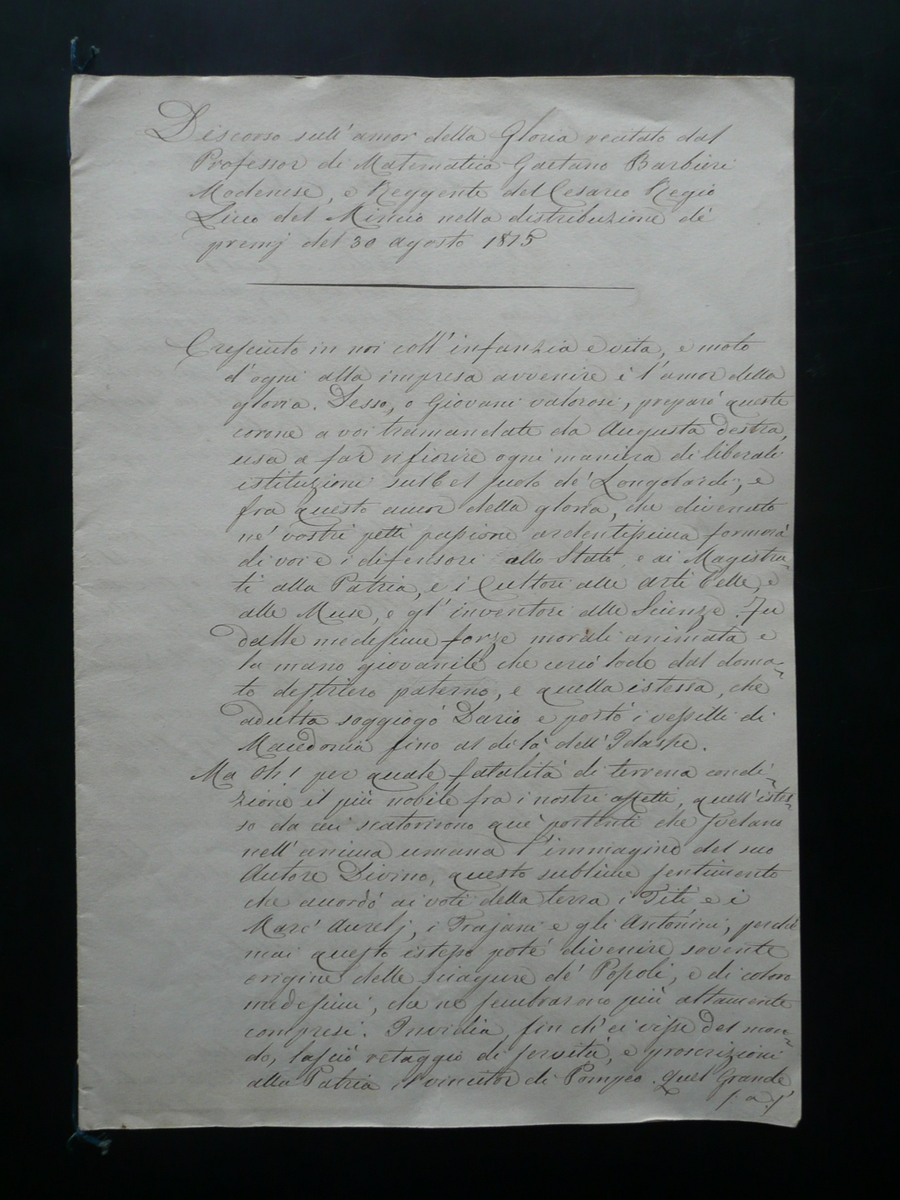 Discorso sull'amor della Gloria recitato dal
Professor di Matematica Gaetano Barbieri
Modenese, e Reggente del Cesareo Regio
Liceo del Mincio nella distribuzione de'
premj del 30 agosto 1815
Cresciuto in noi coll'infanzia è vita, e moto
d'ogni alta impresa avvenire è l'amor della
gloria. Desso, o Giovani valorosi, preparò queste
corone a voi tramandate da Augusta destra,
usa a far rifiorire ogni maniera di liberali
istituzioni sul bel suolo de' Longobardi, e
fia questo amor della gloria, che divenuto
ne' vostri petti passione ardentissima formerà
di voi e i difensori allo Stato, e ai Magistra-
ti alla Patria, e i Cultori alle arti belle, e
alle Muse, e gl'inventori alle Scienze. Fu
dalle medesime forze morali animata e
la mano giovanile che cercò lode dal doma-
to destriero paterno, e quella istessa, che
adulta soggiogò Dario e portò i vessilli di
Macedonia fino al di là dell'Idaspe.
Ma Oh! per quale fatalità di terrena condi-
zione il più nobile fra i nostri affetti, quell'istes-
so da cui scaturirono que' portenti che svelano
nell'anima umana l'immagine del suo
Autore Divino, questo sublime sentimento
che accordò ai voti della terra i Titi e i
Marc'Aurelj, i Trajani e gli Antonini, perchè
mai questo istesso potè divenire sovente
origine delle sciagure de' Popoli, e di coloro
medesimi, che ne sembrarono più altamente
compresi. Invidia, fin ch'ei visse del mon-
do, lasciò retaggio di servitù, e proscrizioni
alla Patria il vincitor di Pompeo. Quel Grande